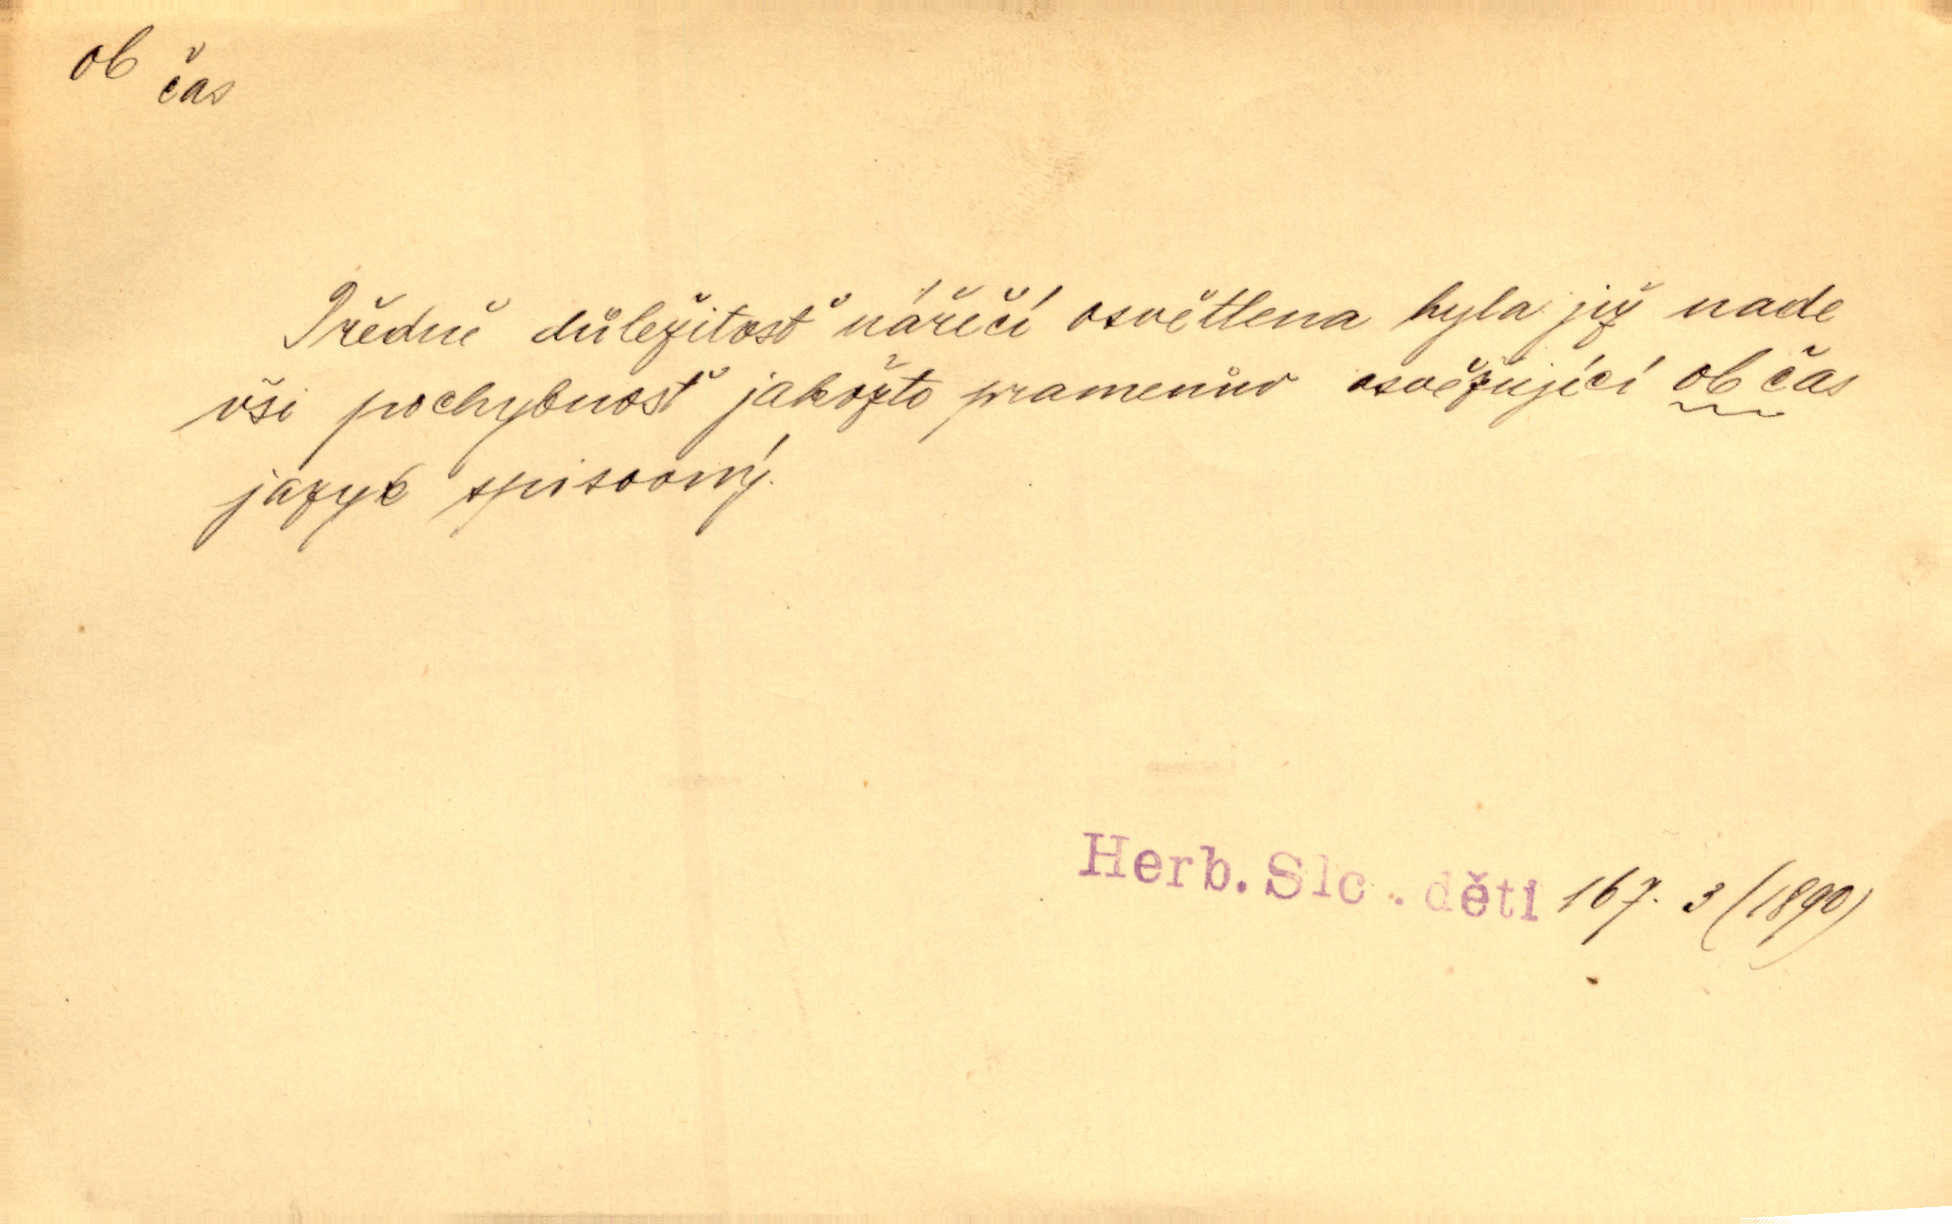 ob čas
Předně důležitosť nářečí osvětlena byla již nade
vši pochybnosť jakožto pramenův osvěžující ob čas
jazyk spisovný.
Herb. Slc. děti 167. 3 (1890)